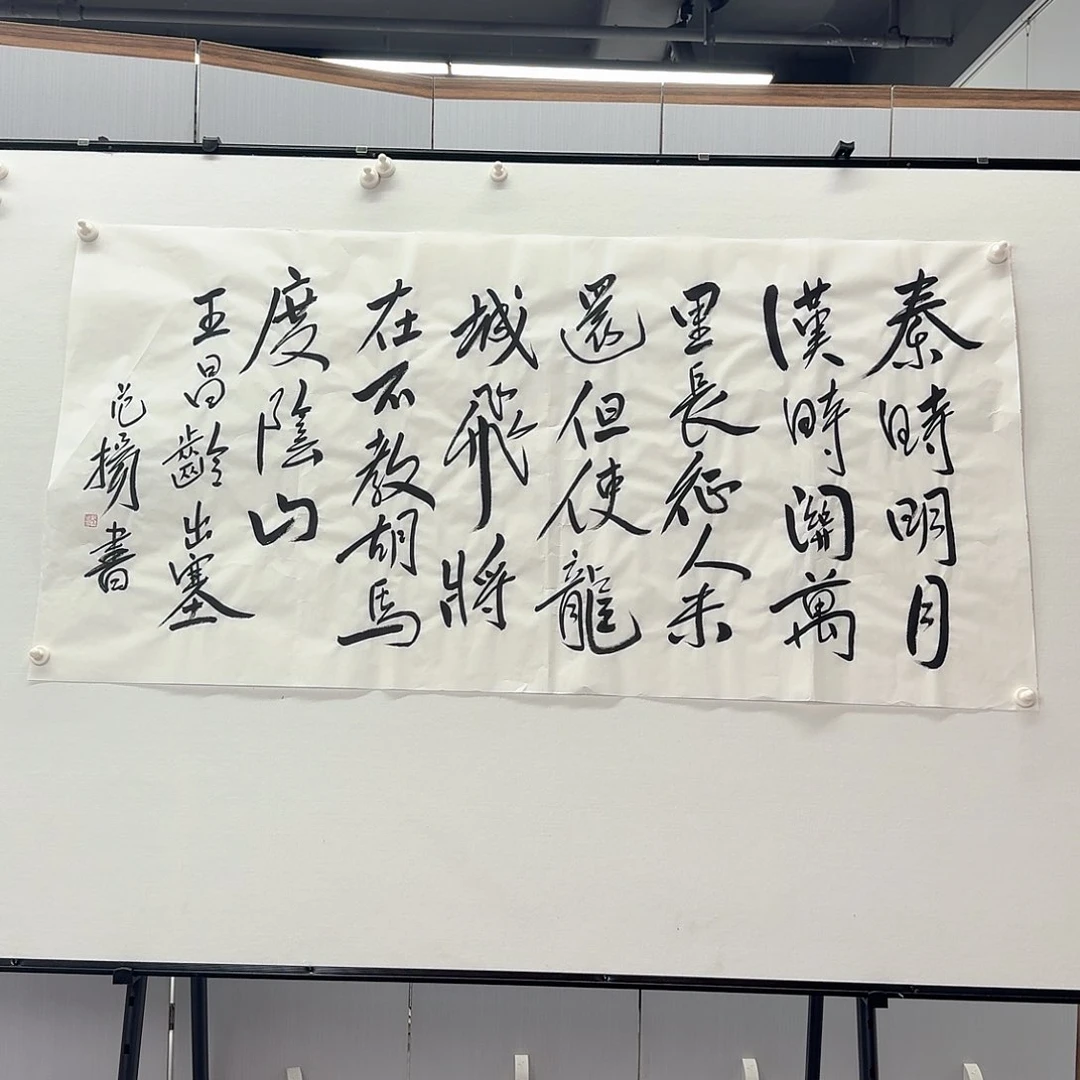 秦時明月
漢時関萬
里長征人未
還但使龍
城飛將
在不教胡馬
度陰山
王昌齡出塞
范揚書